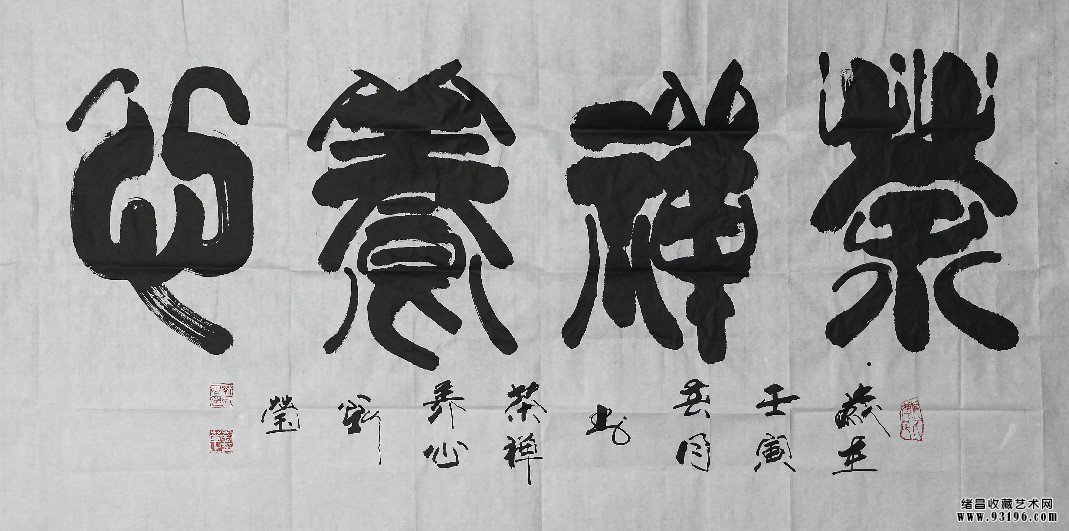 茶禪養心
歲在
壬寅
月
书
茶禅
养心
劉
瑩
绪昌收藏艺术网
www.93196.com